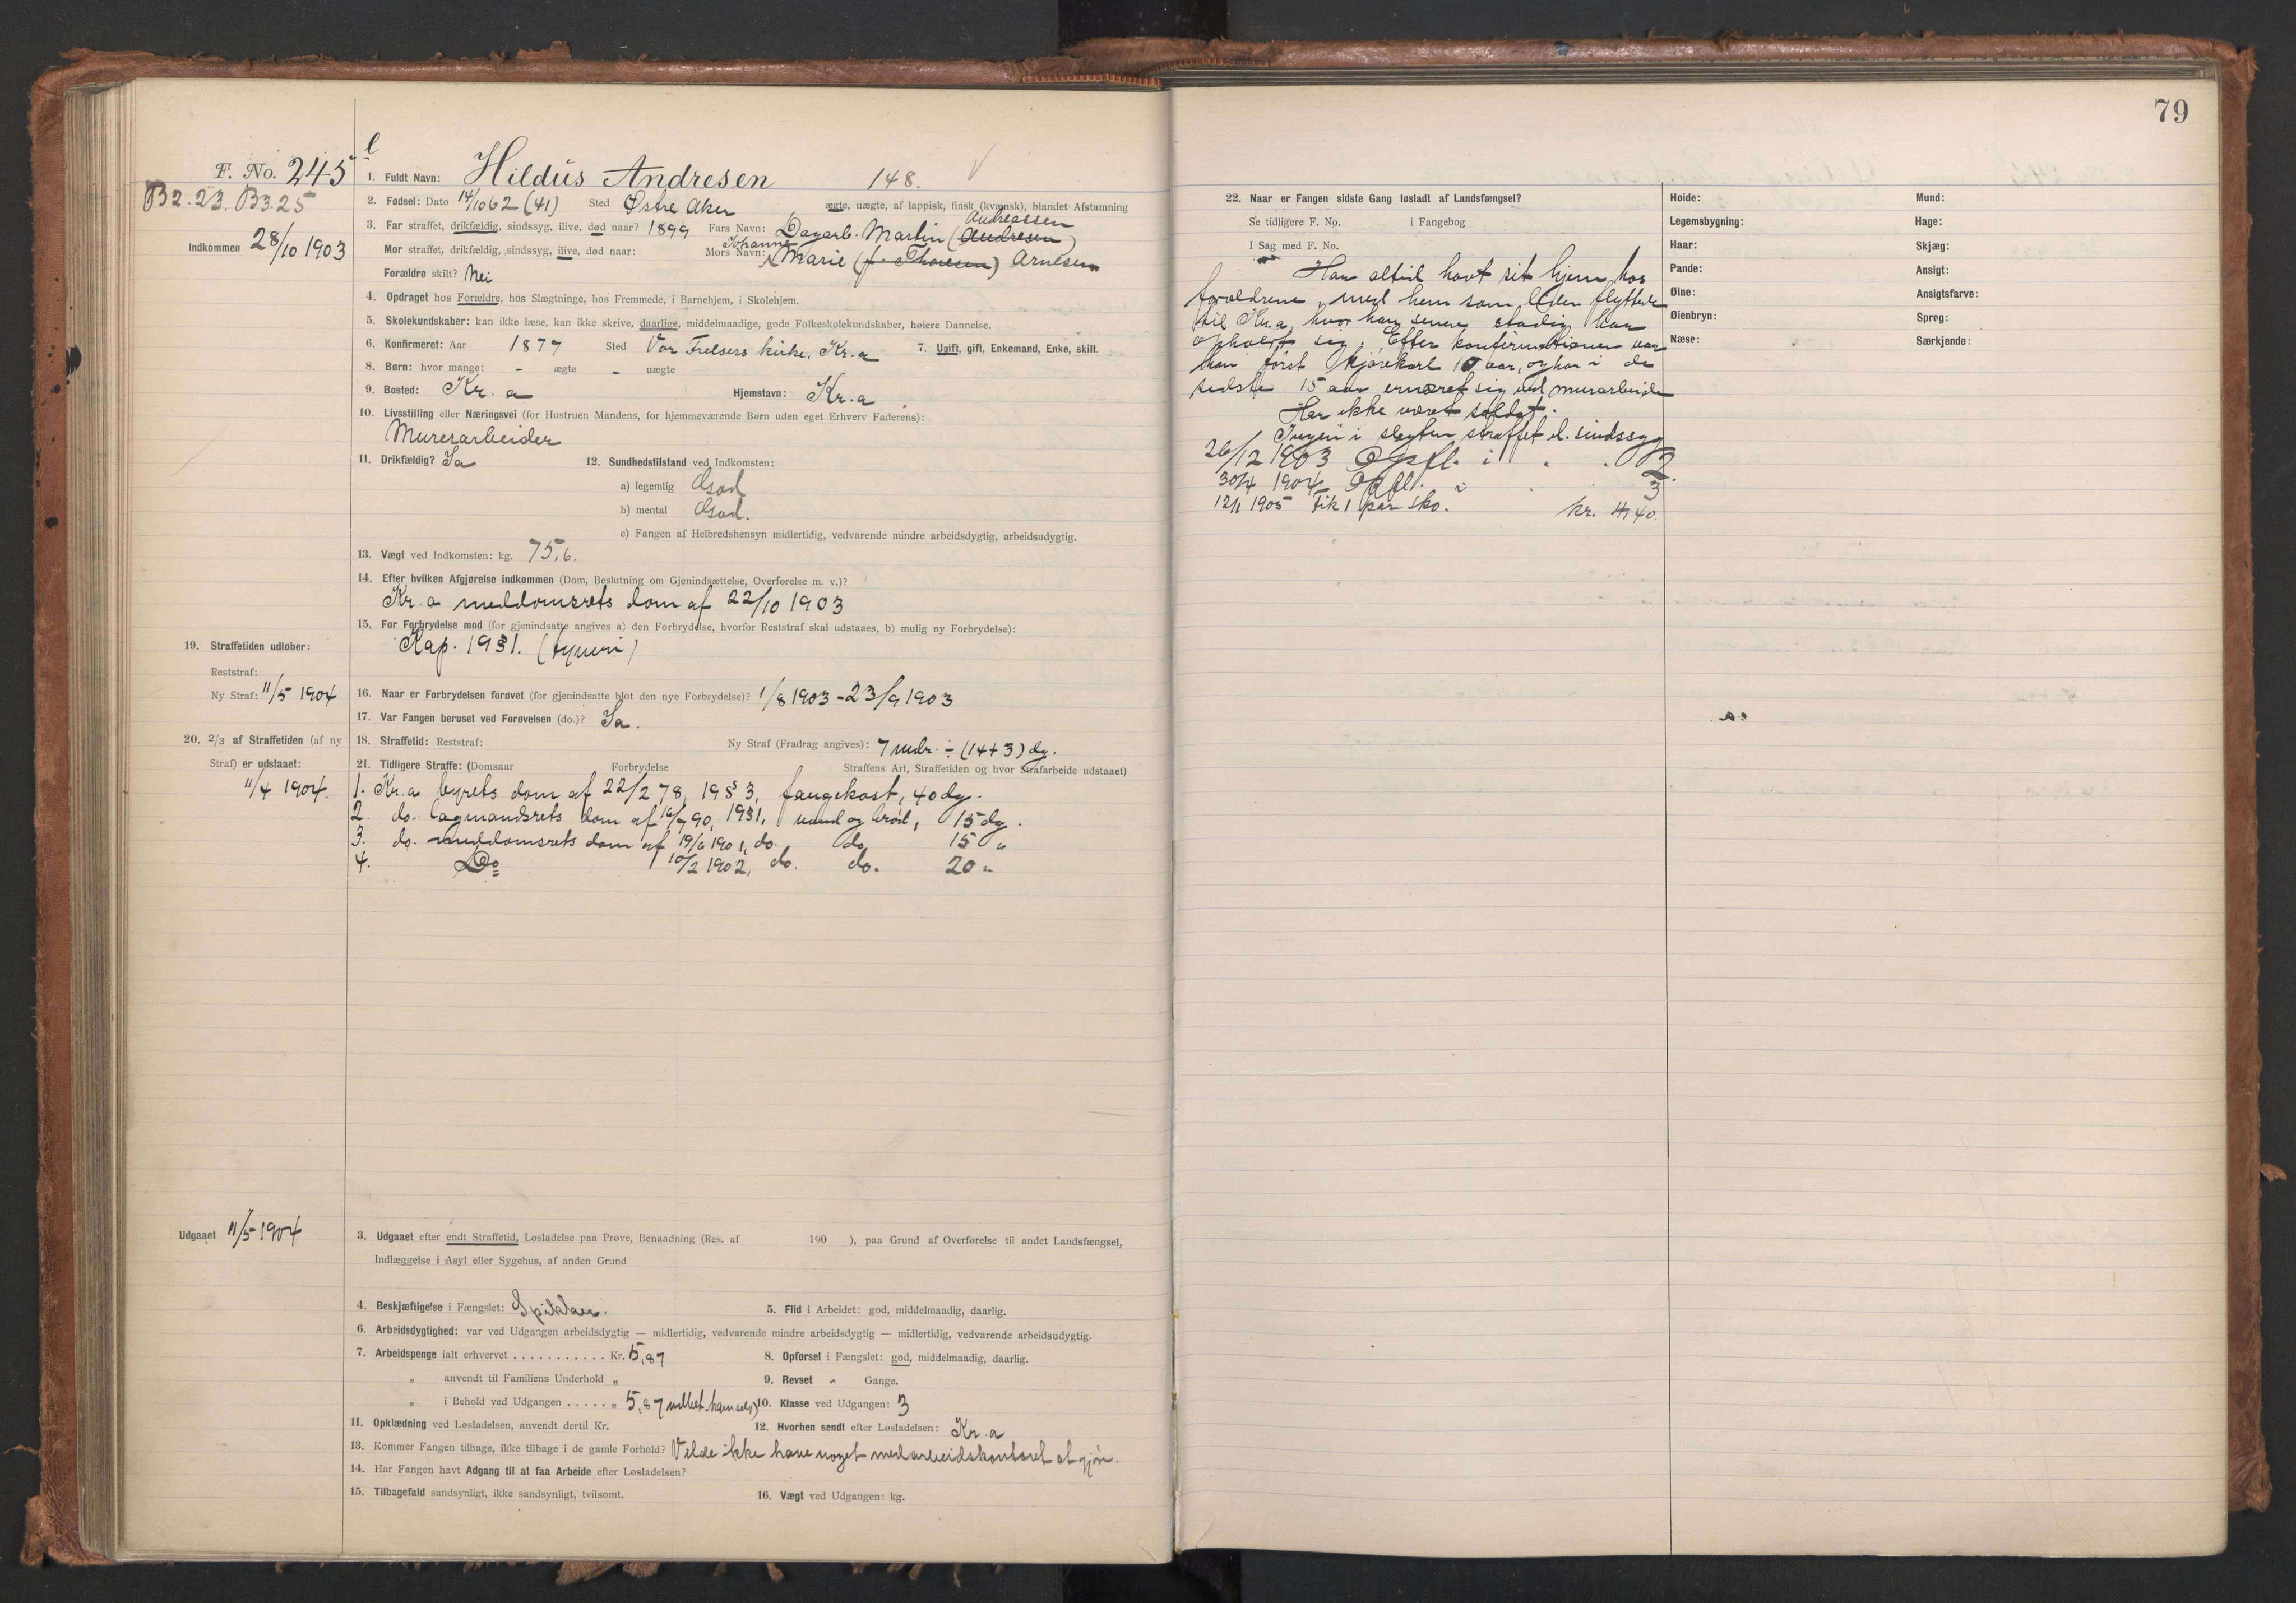 79
l
F. No. 245
B2.23. B3.25
Indkommen 28/10 1903
1. Fuldt Navn: Hildus Andresen 148.
2. Fødsel: Dato 14/10 62 (41) Sted Østre Aker ægte, uægte, af lappisk, finsk (kvænsk), blandet Afstamning
Andreassen
3. Far straffet, drikfældig, sindssyg, ilive, død naar? 1899 Fars Navn: Dagarb. Martin (Andresen)
Johanne
Mor straffet, drikfældig, sindssyg, ilive, død naar: Mors Navn: Marie (f. Thoresen) Arnesen
Forældre skilt? Nei
4. Opdraget hos Forældre, hos Slægtninge, hos Fremmede, i Barnehjem, i Skolehjem.
5. Skolekundskaber: kan ikke læse, kan ikke skrive, daarlige, middelmaadige, gode Folkeskolekundskaber, høiere Dannelse.
6. Konfirmeret: Aar 1877 Sted Vor Frelsers kirke, Kr.a 7. Ugift, gift, Enkemand, Enke, skilt.
8. Børn: hvor mange: - ægte - uægte
9. Bosted: Kr. a Hjemstavn: Kr.a
10. Livsstilling eller Næringsvei (for Hustruen Mandens, for hjemmeværende Børn uden eget Erhverv Faderens):
Murerarbeider
11. Drikfældig? Ja 12. Sundhedstilstand ved Indkomsten:
a) legemlig God
b) mental God.
c) Fangen af Helbredshensyn midlertidig, vedvarende mindre arbeidsdygtig, arbeidsudygtig.
13. Vægt ved Indkomsten: kg. 75,6.
14. Efter hvilken Afgjørelse indkommen (Dom, Beslutning om Gjenindsættelse, Overførelse m. v.)?
Kr.a meddomsrets dom af 22/10 1903
15. For Forbrydelse mod (for gjenindsatte angives a) den Forbrydelse, hvorfor Reststraf skal udstaaes, b) mulig ny Forbrydelse):
Kap. 19§1. (tyveri)
19. Straffetiden udløber:
Reststraf:
Ny Straf: 11/5 1904
16. Naar er Forbrydelsen forøvet (for gjenindsatte blot den nye Forbrydelse)? 1/8 1903 - 23/9 1903
17. Var Fangen beruset ved Forøvelsen (do.)? Ja.
20. 2/3 af Straffetiden (af ny
Straf) er udstaaet:
11/4 1904.
18. Straffetid: Reststraf: Ny Straf (Fradrag angives): 7 mdr. ÷ (14+3) dg.
21. Tidligere Straffe: (Domsaar Forbrydelse Straffens Art, Straffetiden og hvor Strafarbeide udstaaet)
1. Kr.a byrets dom af 22/2 78, 19§3, fangekost, 40 dg.
2. do. lagmandsrets dom af 16/7 90, 19§1, vand og brød, 15 dg.
3. do. meddomsrets dom af 19/6 1901, do. do. 15 "
4. Do 10/2 1902, do. do. 20 "
Udgaaet 11/5 1904
3. Udgaaet efter endt Straffetid, Løsladelse paa Prøve, Benaadning (Res. af 190 ), paa Grund af Overførelse til andet Landsfængsel,
Indlæggelse i Asyl eller Sygehus, af anden Grund
4. Beskjæftigelse i Fængslet: 5. Flid i Arbeidet: god, middelmaadig, daarlig.
6. Arbeidsdygtighed: var ved Udgangen arbeidsdygtig — midlertidig, vedvarende mindre arbeidsdygtig — midlertidig, vedvarende arbeidsudygtig.
7. Arbeidspenge ialt erhvervet ........... Kr. 5,87 8. Opførsel i Fængslet: god, middelmaadig, daarlig.
" anvendt til Familiens Underhold " 9. Revset " Gange.
" i Behold ved Udgangen ..... " 5,87 10. Klasse ved Udgangen: 3
11. Opklædning ved Løsladelsen, anvendt dertil Kr. 12. Hvorhen sendt efter Løsladelsen: Kr.a
13. Kommer Fangen tilbage, ikke tilbage i de gamle Forhold? Vilde ikke have noget med arbeidskontoret at gjøre.
14. Har Fangen havt Adgang til at faa Arbeide efter Løsladelsen?
15. Tilbagefald sandsynligt, ikke sandsynligt, tvilsomt. 16. Vægt ved Udgangen: kg.
22. Naar er Fangen sidste Gang løsladt af Landsfængsel?
Se tidligere F. No. i Fangebog
I Sag med F. No.
Har altid havt sit hjem hos
forældrene, med hem som liden flyttede
til Kr.a, hvor han senere stadig har
opholdt sig. Efter konfirmationen var
han først kjørekarl 10 aar, og har i de
sidste 15 aar ernæret sig ved murarbeide
Har ikke været soldat.
Ingen i slegten straffet el. sindssyg
26/12 1903 Opfl. i 2.
30/4 1904 Opfl. i 3
12/1 1905 Fik 1 par sko. kr. 4,40.
Høide:
Legemsbygning:
Haar:
Pande:
Øine:
Øienbryn:
Næse:
Mund:
Hage:
Skjæg:
Ansigt:
Ansigtsfarve:
Sprog:
Særkjende: